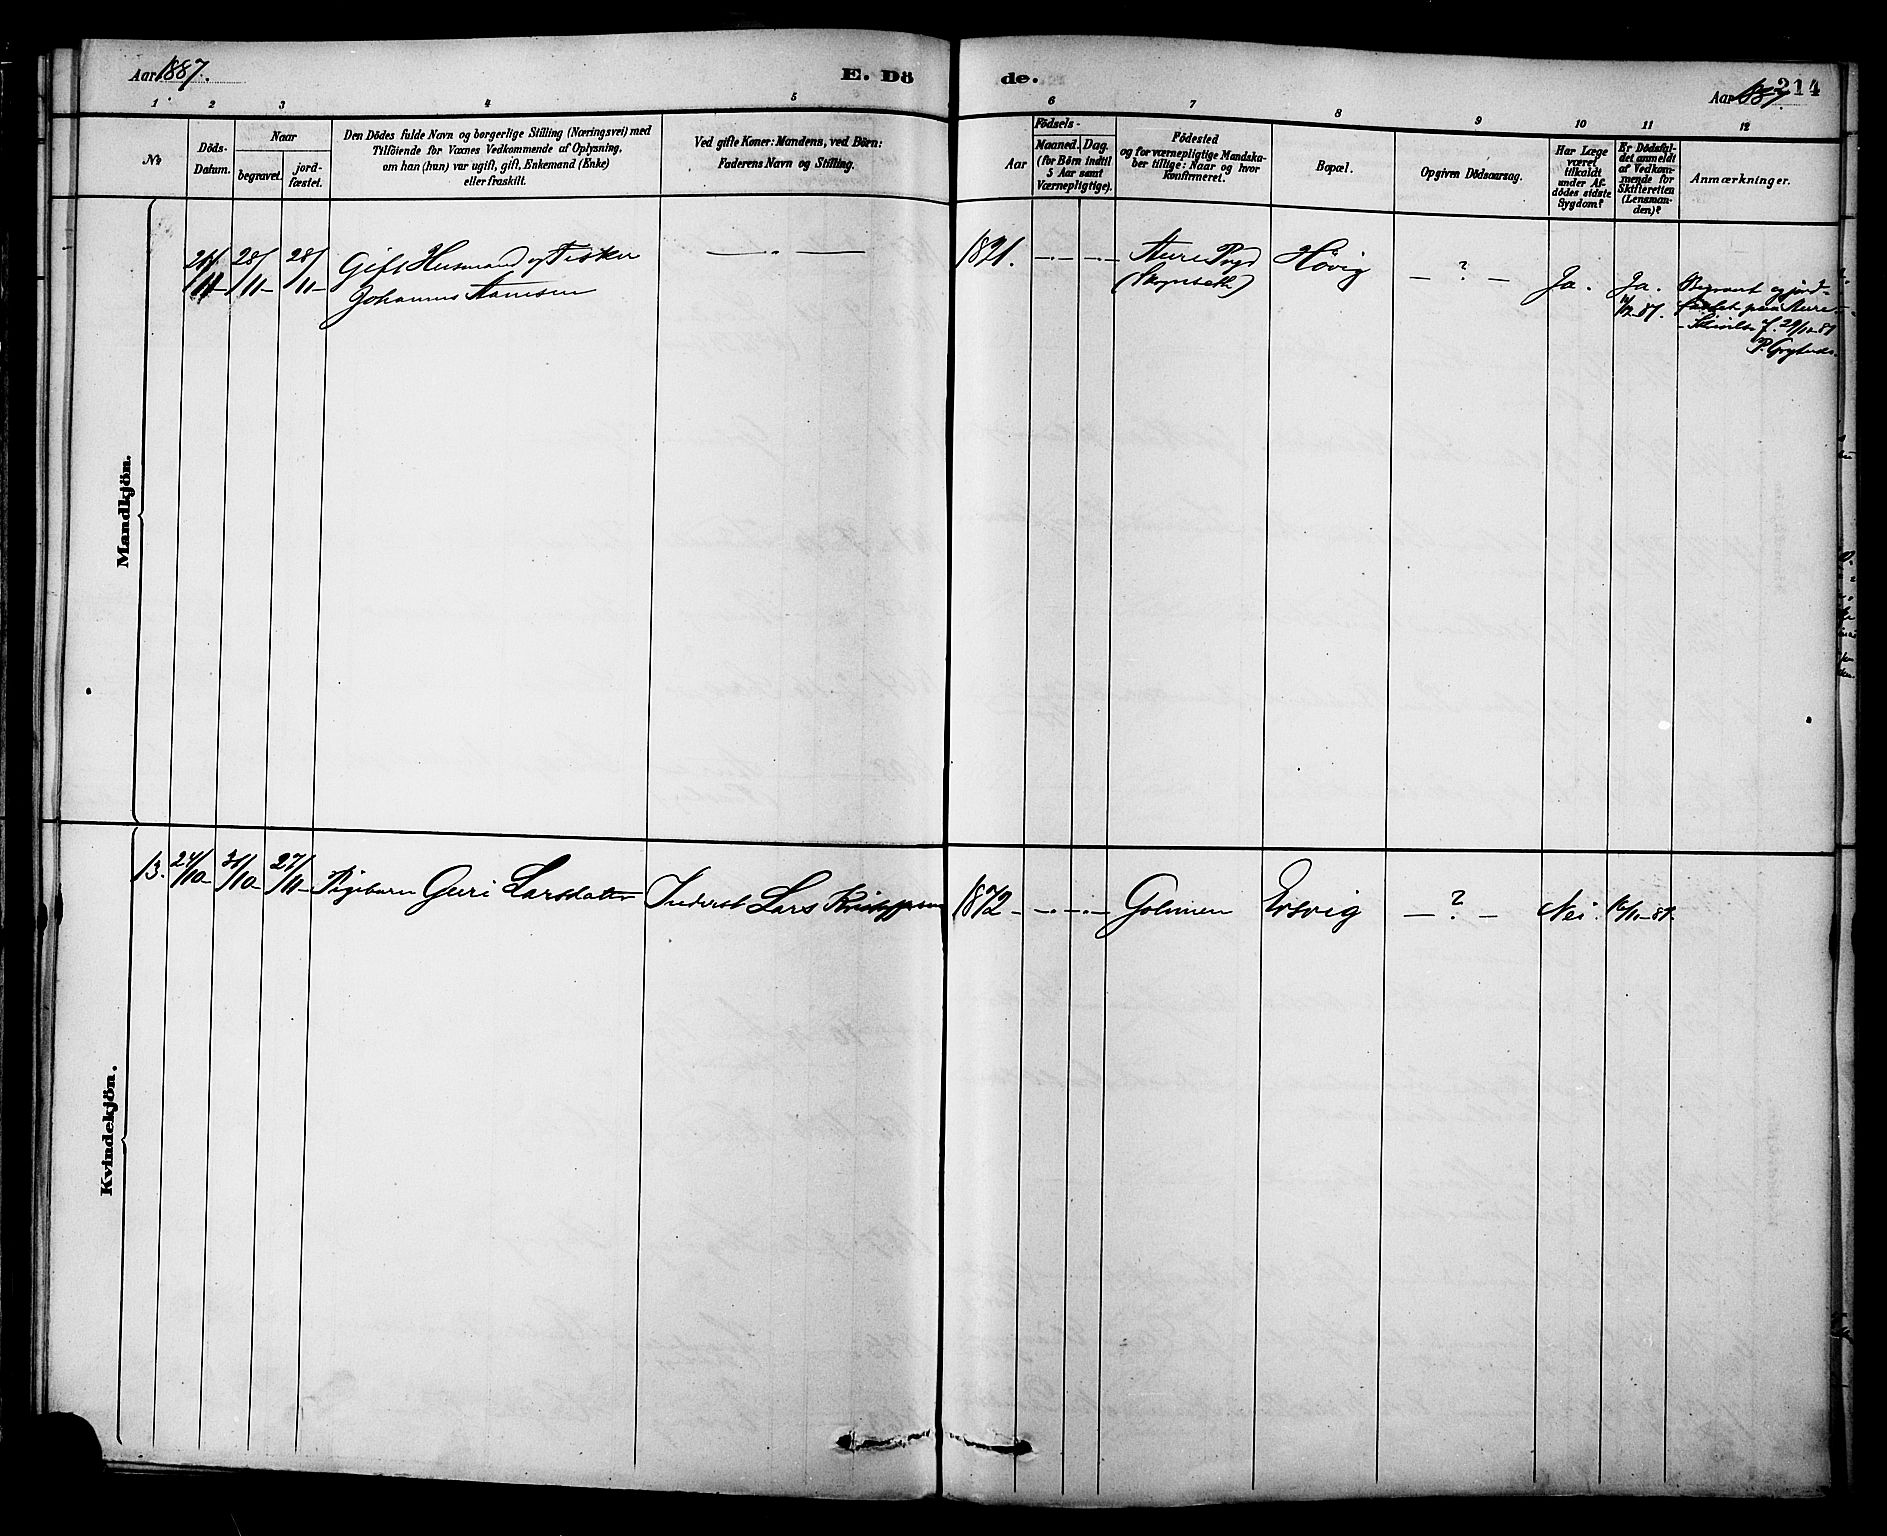 Aar 1887.
E. Dö
de.
Aar 1887.
214
1 2 3 4 5 6 7 8 9 10 11 12
№
Döds-
Datum.
Naar
begravet.
jord-
fæstet.
Den Dödes fulde Navn og borgerlige Stilling (Næringsvei) med
Tilföiende for Voxnes Vedkommende af Oplysning,
om han (hun) var ugift, gift, Enkemand (Enke)
eller fraskilt.
Ved gifte Koner: Mandens, ved Börn:
Faderens Navn og Stilling.
Aar
Födsels-
Maaned. Dag.
(for Börn indtil
5 Aar samt
Værnepligtige).
Födested
og for værnepligtige Mandska-
ber tillige: Naar og hvor
konfirmeret.
Bopæl.
Opgiven Dödsaarsag.
Har Læge
været
tilkaldt
under Af-
dödes sidste
Sygdom?
Er Dödsfal-
det anmeldt
af Vedkom-
mende for
Skifteretten
(Lensman-
den)?
Anmærkninger.
Mandkjön.
28/11 28/11 Gift Husmand og Fisker
Johannes
1821. Aure Prgd
Høvig
— ? —
Ja.
Ja.
Begravet og jord-
fæstet paa Aure
Kvindekjön.
13. 24/10 27/11 Pigebarn Guri Larsdatter Inderst Lars
1872 Ersvig — ? — Nei. 16/11-87.